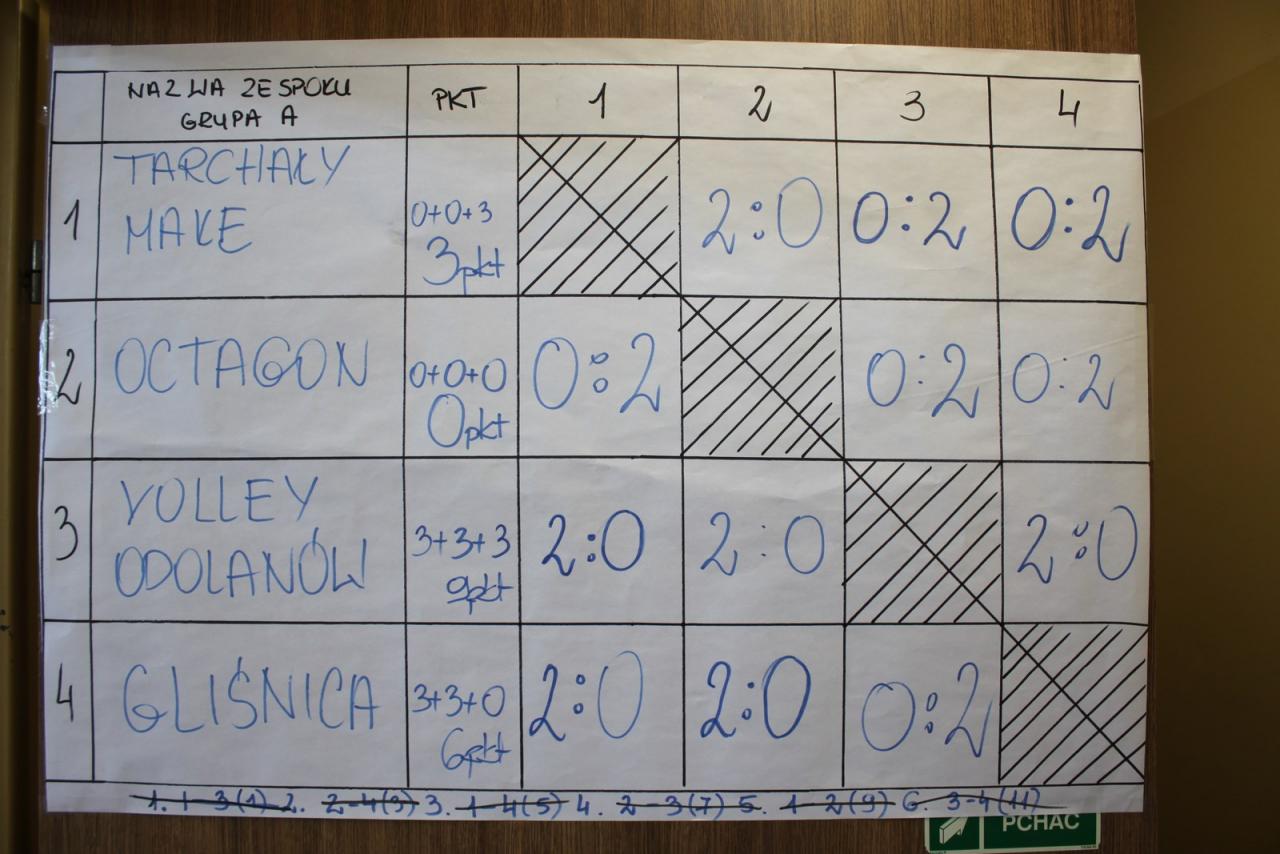 NAZWA ZESPOŁU PKT 1 2 3 4
GRUPA A
1 TARCHAŁY MAŁE 0+0+3 3pkt 2:0 0:2 0:2
2 OCTAGON 0+0+0 0pkt 0:2 0:2 0:2
3 VOLLEY ODOLANÓW 3+3+3 9pkt 2:0 2:0 2:0
4 GLIŚNICA 3+3+0 6pkt 2:0 2:0 0:2
1. 1-3(1) 2. 2-4(3) 3. 1-4(5) 4. 2-3(7) 5. 1-2(9) 6. 3-4(11)
PCHAĆ